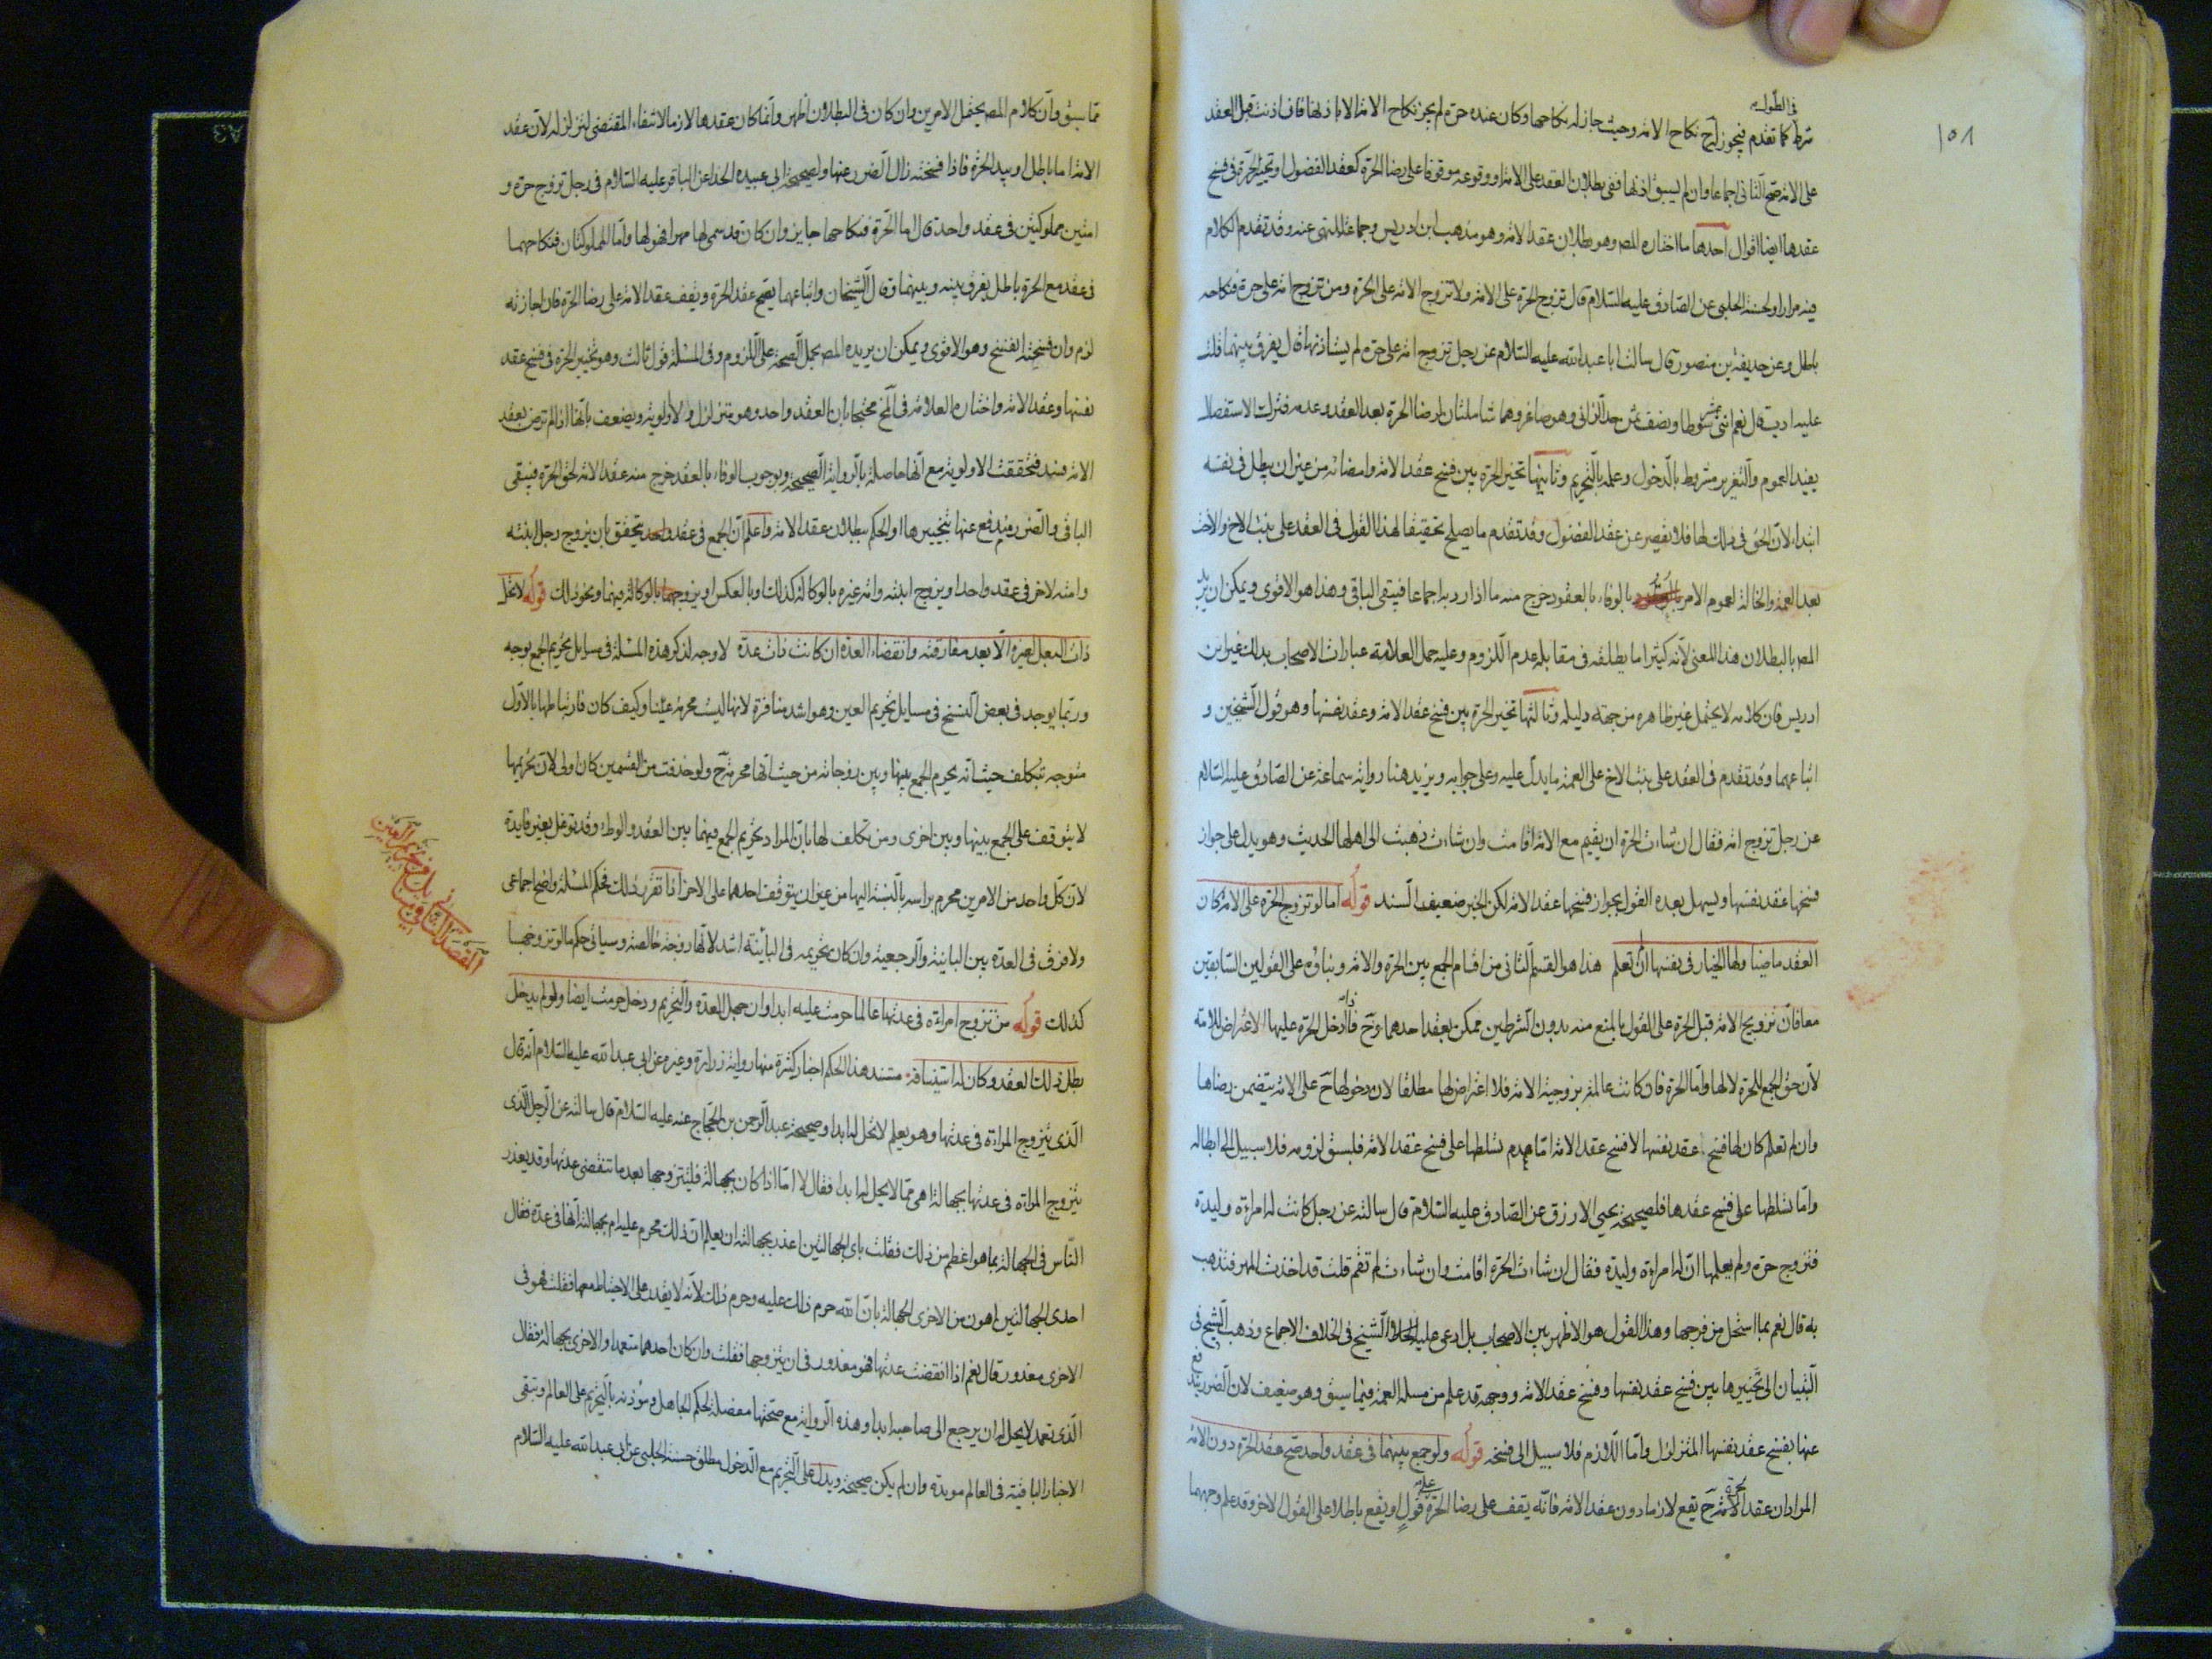 ١٥٨
في الطول
شرط كما تقدم فيجوز ح نكاح الامة وحيث جاز له نكاحها وكان عنده حرة لم يجز نكاح الامة الا باذنها فان اذنت قبل العقد
على الامة صح الثاني اجماعا وان لم يسبق اذنها ففي بطلان العقد على الامة او وقوعه موقوفا على رضا الحرة كعقد الفضول او تخير الحرة في فسخ
عقدها ايضا اقوال احدها ما اختاره المص وهو بطلان عقد الامة وهو مذهب ابن ادريس وجماعة للنهي عنه وقد تقدم الكلام
فيه مرارا ولحسنة الحلبي عن الصادق عليه السلام قال تزوج الحرة على الامة ولا تزوج الامة على الحرة ومن تزوج امة على حرة فنكاحه
باطل وعن حذيفة بن منصور قال سالت ابا عبد الله عليه السلام عن رجل تزوج امة على حرة لم يستاذنها قال يفرق بينهما قلت
عليه ادب قال نعم اثنى عشر سوطا ونصف ثمن حد الزاني وهو صاغر وهما شاملتان لرضا الحرة بعد العقد وعدمه فترك الاستفصال
يفيد العموم والتعزير مشروط بالدخول وعلمه بالتحريم وثانيها تخير الحرة بين فسخ عقد الامة وامضائه من غير ان يبطل في نفسه
ابتداء لان الحق في ذلك لها فلا يقصر عن عقد الفضول وقد تقدم ما يصلح تحقيقا لهذا القول في العقد على بنت الاخ والاخت
بعد العمة والخالة لعموم الامر بالوفاء بالعقود خرج منه ما اذا رد به اجماعا فيبقى الباقي وهذا هو الاقوى ويمكن ان يريد
المص بالبطلان هذا المعنى لانه كثيرا ما يطلقه في مقابله عدم اللزوم وعليه حمل العلامة عبارات الاصحاب بذلك غير ابن
ادريس فان كلامه لا يحتمل غير ظاهره من جهة دليله وثالثها تخير الحرة بين فسخ عقد الامة وعقد نفسها وهو قول الشيخين و
اتباعهما وقد تقدم في العقد على بنت الاخ على العمة ما يدل عليه وعلى جوابه ويزيد هنا رواية سماعة عن الصادق عليه السلام
عن رجل تزوج امة فقال ان شاءت الحرة ان يقيم مع الامة اقامت وان شاءت ذهبت الى اهلها الحديث وهو يدل على جواز
فسخها عقد نفسها ويسهل بعده القول بجواز فسخها عقد الامة لكن الخبر ضعيف السند قوله اما لو تزوج الحرة على الامة كان
العقد ماضيا ولها الخيار في نفسها ان لم تعلم هذا هو القسم الثاني من اقسام الجمع بين الحرة والامة وبناؤه على القولين السابقين
معا فان تزويج الامة قبل الحرة على القول بالمنع منه بدون الشرطين ممكن بفقد احدهما وح فاذا دخل الحرة عليها لا اعتراض للامة
لان حق الجمع للحرة لا لها واما الحرة فان كانت عالمة بزوجية الامة فلا اعتراض لها مطلقا لان دخولها ح على الامة يتضمن رضاها
وان لم تعلم كان لها فسخ عقد نفسها لا فسخ عقد الامة اما عدم تسلطها على فسخ عقد الامة فلسبق لزومه فلا سبيل الى ابطاله
واما تسلطها على فسخ عقدها فلصحيحة يحيى الازرق عن الصادق عليه السلام قال سالته عن رجل كانت له امراة وليدة
فتزوج حرة ولم يعلمها ان له امراة وليدة فقال ان شاءت الحرة اقامت وان شاءت لم تقم قلت قد اخذت المهر فتذهب
به قال نعم بما استحل من فرجها وهذا القول هو الاظهر بين الاصحاب بل ادعى عليه الشيخ في الخلاف الاجماع وذهب الشيخ في
التبيان الى تخييرها بين فسخ عقد نفسها وفسخ عقد الامة ووجهه قد علم من مسلة العمة فيما سبق وهو ضعيف لان الضرر يندفع
عنها بفسخ عقد نفسها المتزلزل واما اللازم فلا سبيل الى فسخه قوله ولو جمع بينهما في عقد واحد صح عقد الحرة دون الامة
المراد ان عقد الحرة ح يقع لازما دون عقد الامة فانه يقف على رضا الحرة على قول او يقع باطلا على القول الاخر وقد علم وجههما
مما سبق وان كلام المص يحتمل الامرين وان كان في البطلان اظهر وانما كان عقدها لازما لانتفاء المقتضى لتزلزله لان عقد
الامة اما باطل او بيد الحرة فاذا فسخته زال الضرر عنها ولصحيحة ابي عبيده الحذا عن الباقر عليه السلام في رجل تزوج حرة و
امتين مملوكتين في عقد واحد قال اما الحرة فنكاحها جايز وان كان قد سمى لها مهرا فهو لها واما المملوكتان فنكاحهما
في عقد مع الحرة باطل يفرق بينه وبينهما وقال الشيخان واتباعهما يصح عقد الحرة ويقف عقد الامة على رضا الحرة فان اجازته
لزم وان فسخته انفسخ وهو الاقوى ويمكن ان يريده المص بحمل الصحة على اللزوم وفي المسئلة قول ثالث وهو تخيير الحرة في فسخ عقد
نفسها وعقد الامة واختاره العلامة في المخ محتجا بان العقد واحد وهو متزلزل ولا اولوية ويضعف بانها اذا لم ترض بعقد
الامة فسد فتحققت الاولوية مع انها حاصلة بالرواية الصحيحة وبوجوب الوفاء بالعقد خرج منه عقد الامة لحق الحرة فيبقى
الباقي والضرر يندفع عنها بتخييرها او الحكم ببطلان عقد الامة واعلم ان الجمع في عقد واحد يتحقق بان يزوج رجل ابنته
وامته لاخر في عقد واحد او يزوج ابنته وامة غيره بالوكالة كذلك او بالعكس او يزوجهما بالوكالة فيهما ونحو ذلك قوله لا تحل
ذات البعل لغيره الا بعد مفارقته وانقضاء العدة ان كانت ذات عدة لا وجه لذكر هذه المسئلة في مسايل تحريم الجمع بوجه
وربما يوجد في بعض النسخ في مسايل تحريم العين وهو اشد منافرة لانها ليست محرمة عينا وكيف كان فارتباطها بالاول
متوجه بتكلف حيث انه يحرم الجمع بينها وبين زوجاته من حيث انها محرمة ح ولو حذفت من القسمين كان اولى لان تحريمها
لا يتوقف على الجمع بينها وبين اخرى ومن تكلف لها بان المراد تحريم الجمع فيهما بين العقد والوطء وقد توغل بغير فايدة
لان كل واحد من الامرين محرم براسه بالنسبة اليها من غير ان يتوقف احدهما على الاخر اذا تقرر ذلك فحكم المسئلة واضح اجماعي
ولا فرق في العدة بين البائنة والرجعية وان كان تحريمه في البائنة اشد لانها زوجة خالصة وسياتي حكم ما لو تزوجها
كذلك قوله من تزوج امراة في عدتها عالما حرمت عليه ابدا وان جهل العدة والتحريم ودخل حرمت ايضا ولو لم يدخل
بطل ذلك العقد وكان له استينافه مستند هذا الحكم اخبار كثيرة منها رواية زرارة وغيره عن ابي عبد الله عليه السلام انه قال
الذي يتزوج المراة في عدتها وهو يعلم لا تحل له ابدا وصحيحة عبد الرحمن بن الحجاج عنه عليه السلام قال سالته عن الرجل الذي
يتزوج المراة في عدتها بجهالة اهي مما لا يحل له ابدا فقال لا اما اذا كان بجهالة فليتزوجها بعد ما تنقضي عدتها وقد يعذر
الناس في الجهالة بما هو اعظم من ذلك فقلت باي الجهالتين اعذر بجهالته ان يعلم ان ذلك محرم عليه ام بجهالته انها في عدة فقال
احدى الجهالتين اهون من الاخرى الجهالة بان الله حرم ذلك عليه وحرم ذلك لانه لا يقدر على الاحتياط معها فقلت فهو في
الاخرى معذور قال نعم اذا انقضت عدتها فهو معذور في ان يتزوجها فقلت وان كان احدهما متعمدا والاخرى بجهالة فقال
الذي تعمد لا يحل له ان يرجع الى صاحبه ابدا وهذه الرواية مع صحتها مفصلة لحكم الجاهل ومؤذنة بالتحريم على العالم وتبقى
الاخبار الباقية في العالم مويدة وان لم يكن صحيحة ويدل على التحريم مع الدخول مطلق حسنة الحلبي عن ابي عبد الله عليه السلام
المقصد الثاني في مسايل من تحريم العين